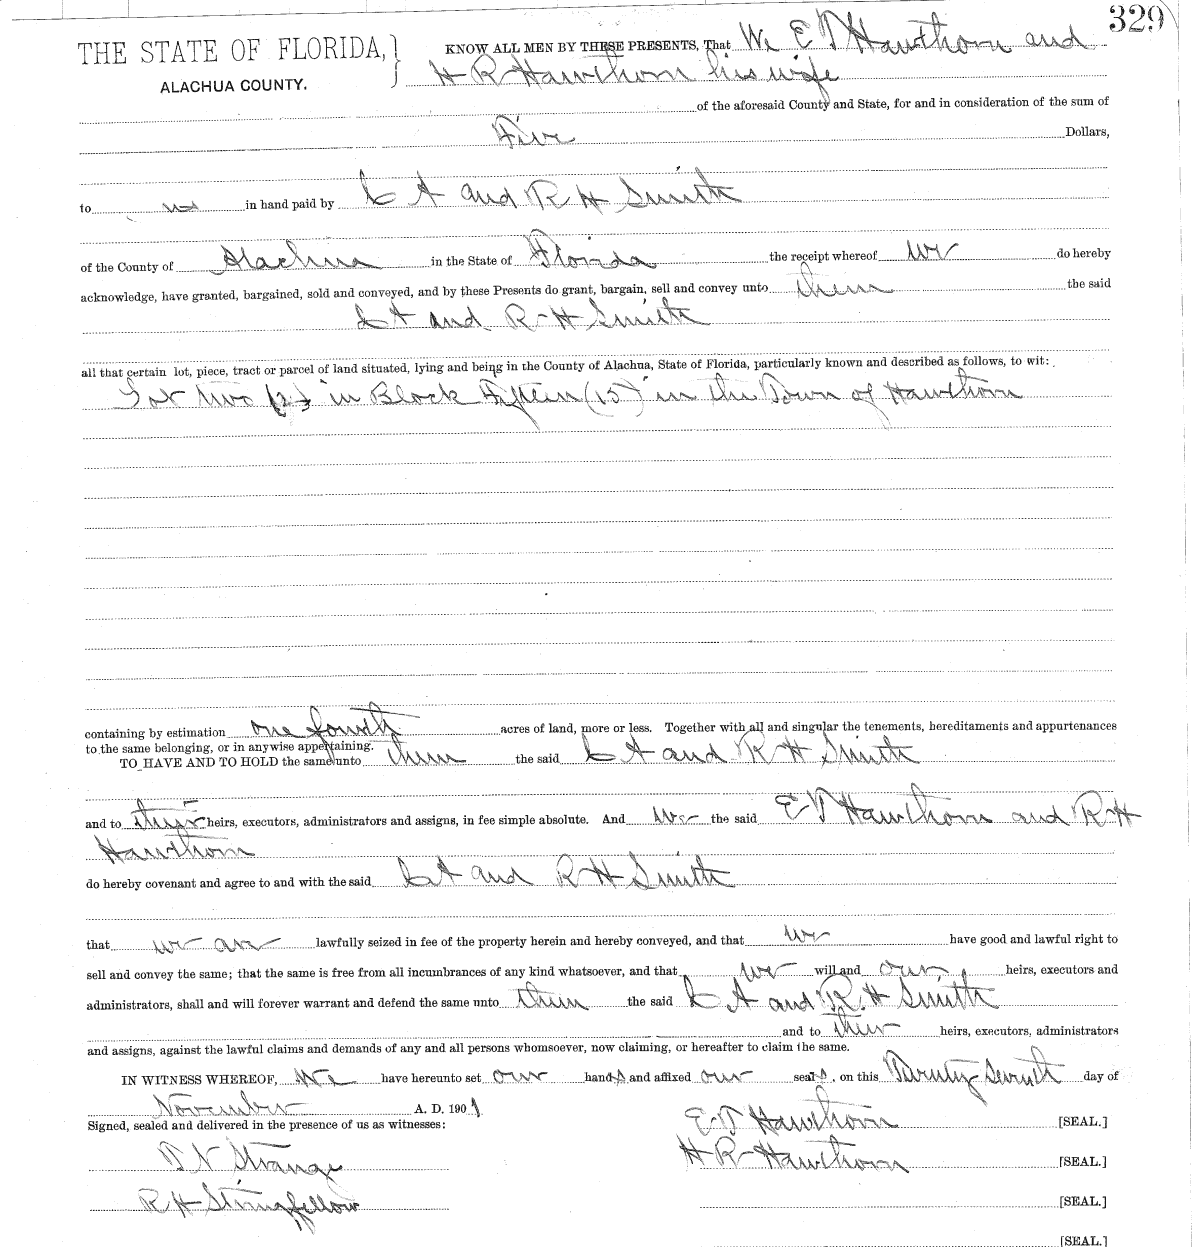 329
THE STATE OF FLORIDA, } KNOW ALL MEN BY THESE PRESENTS, That We E T Hawthorn and
ALACHUA COUNTY. H R Hawthorn his wife
of the aforesaid County and State, for and in consideration of the sum of
Five Dollars,
to us in hand paid by L A and R H Smith
of the County of Alachua in the State of Florida the receipt whereof we do hereby
acknowledge, have granted, bargained, sold and conveyed, and by these Presents do grant, bargain, sell and convey unto them the said
L A and R H Smith
all that certain lot, piece, tract or parcel of land situated, lying and being in the County of Alachua, State of Florida, particularly known and described as follows, to wit:
Lot Two (2) in Block Fifteen (15) in the Town of Hawthorn
containing by estimation one fourth acres of land, more or less. Together with all and singular the tenements, hereditaments and appurtenances
to the same belonging, or in anywise appertaining.
TO HAVE AND TO HOLD the same unto them the said L A and R H Smith
and to their heirs, executors, administrators and assigns, in fee simple absolute. And we the said E T Hawthorn and R H
Hawthorn
do hereby covenant and agree to and with the said L A and R H Smith
that we are lawfully seized in fee of the property herein and hereby conveyed, and that we have good and lawful right to
sell and convey the same; that the same is free from all incumbrances of any kind whatsoever, and that we will and our heirs, executors and
administrators, shall and will forever warrant and defend the same unto them the said L A and R H Smith
and to their heirs, executors, administrators
and assigns, against the lawful claims and demands of any and all persons whomsoever, now claiming, or hereafter to claim the same.
IN WITNESS WHEREOF, We have hereunto set our hands and affixed our seals, on this Twenty Seventh day of
November A. D. 1901
Signed, sealed and delivered in the presence of us as witnesses: E T Hawthorn [SEAL.]
T N Strange H R Hawthorn [SEAL.]
R H Stringfellow [SEAL.]
[SEAL.]